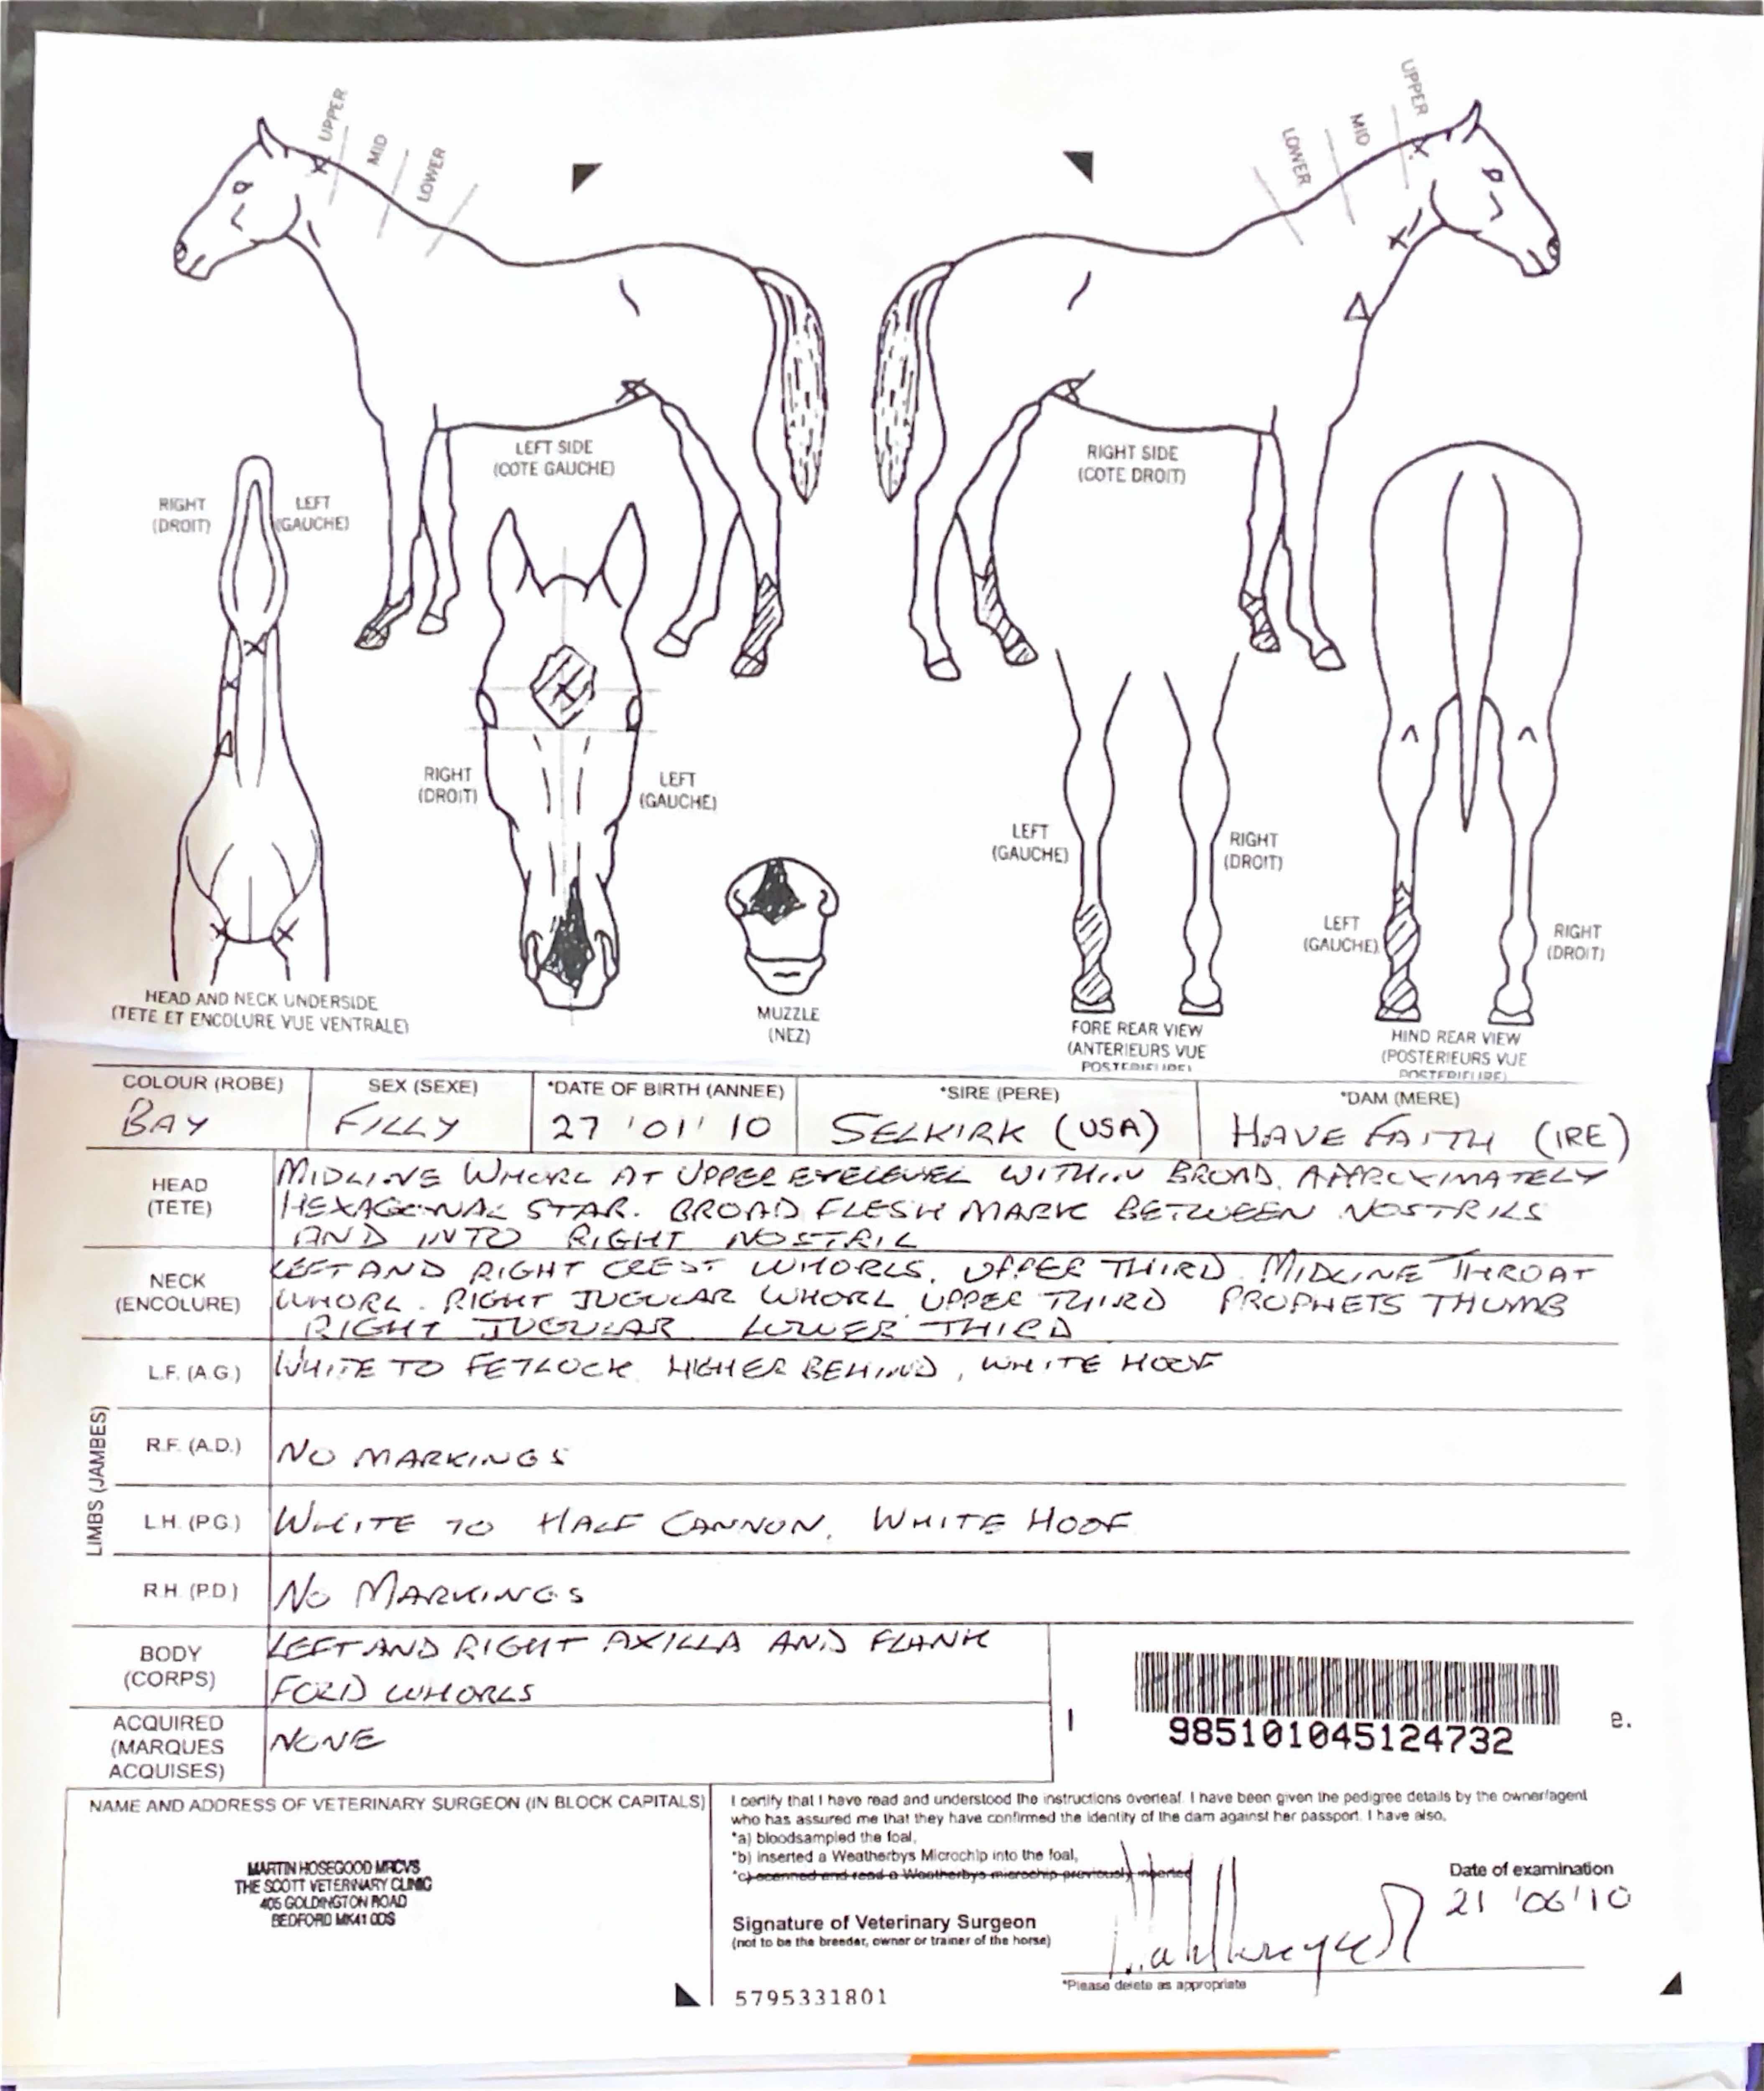 UPPER
MID
LOWER
UPPER
MID
LOWER
LEFT SIDE
(COTE GAUCHE)
RIGHT SIDE
(COTE DROIT)
RIGHT
(DROIT)
LEFT
(GAUCHE)
RIGHT
(DROIT)
LEFT
(GAUCHE)
LEFT
(GAUCHE)
RIGHT
(DROIT)
LEFT
(GAUCHE)
RIGHT
(DROIT)
HEAD AND NECK UNDERSIDE
(TETE ET ENCOLURE VUE VENTRALE)
MUZZLE
(NEZ)
FORE REAR VIEW
(ANTERIEURS VUE
POSTERIEURE)
HIND REAR VIEW
(POSTERIEURS VUE
POSTERIEURE)
COLOUR (ROBE)
BAY
SEX (SEXE)
FILLY
*DATE OF BIRTH (ANNEE)
27 '01' 10
*SIRE (PERE)
SELKIRK (USA)
*DAM (MERE)
HAVE FAITH (IRE)
HEAD
(TETE)
MIDLINE WHORL AT UPPER EYELEVEL WITHIN BROAD, APPROXIMATELY
HEXAGONAL STAR. BROAD FLESH MARK BETWEEN NOSTRILS
AND INTO RIGHT NOSTRIL
NECK
(ENCOLURE)
LEFT AND RIGHT CREST WHORLS, UPPER THIRD. MIDLINE THROAT
WHORL. RIGHT JUGULAR WHORL UPPER THIRD PROPHETS THUMB
RIGHT JUGULAR LOWER THIRD
LIMBS (JAMBES)
L.F. (A.G.)
WHITE TO FETLOCK HIGHER BEHIND, WHITE HOOF
R.F. (A.D.)
NO MARKINGS
L.H. (P.G.)
WHITE TO HALF CANNON, WHITE HOOF
R.H. (P.D.)
NO MARKINGS
BODY
(CORPS)
LEFT AND RIGHT AXILLA AND FLANK
FOLD WHORLS
ACQUIRED
(MARQUES
ACQUISES)
NONE
985101045124732
e.
NAME AND ADDRESS OF VETERINARY SURGEON (IN BLOCK CAPITALS)
MARTIN HOSEGOOD MRCVS
THE SCOTT VETERINARY CLINIC
405 GOLDINGTON ROAD
BEDFORD MK41 0DS
I certify that I have read and understood the instructions overleaf. I have been given the pedigree details by the owner/agent
who has assured me that they have confirmed the identity of the dam against her passport. I have also,
*a) bloodsampled the foal,
*b) inserted a Weatherbys Microchip into the foal,
*c) scanned and read a Weatherbys microchip previously inserted
Date of examination
21 '06' 10
Signature of Veterinary Surgeon
(not to be the breeder, owner or trainer of the horse)
*Please delete as appropriate
5795331801